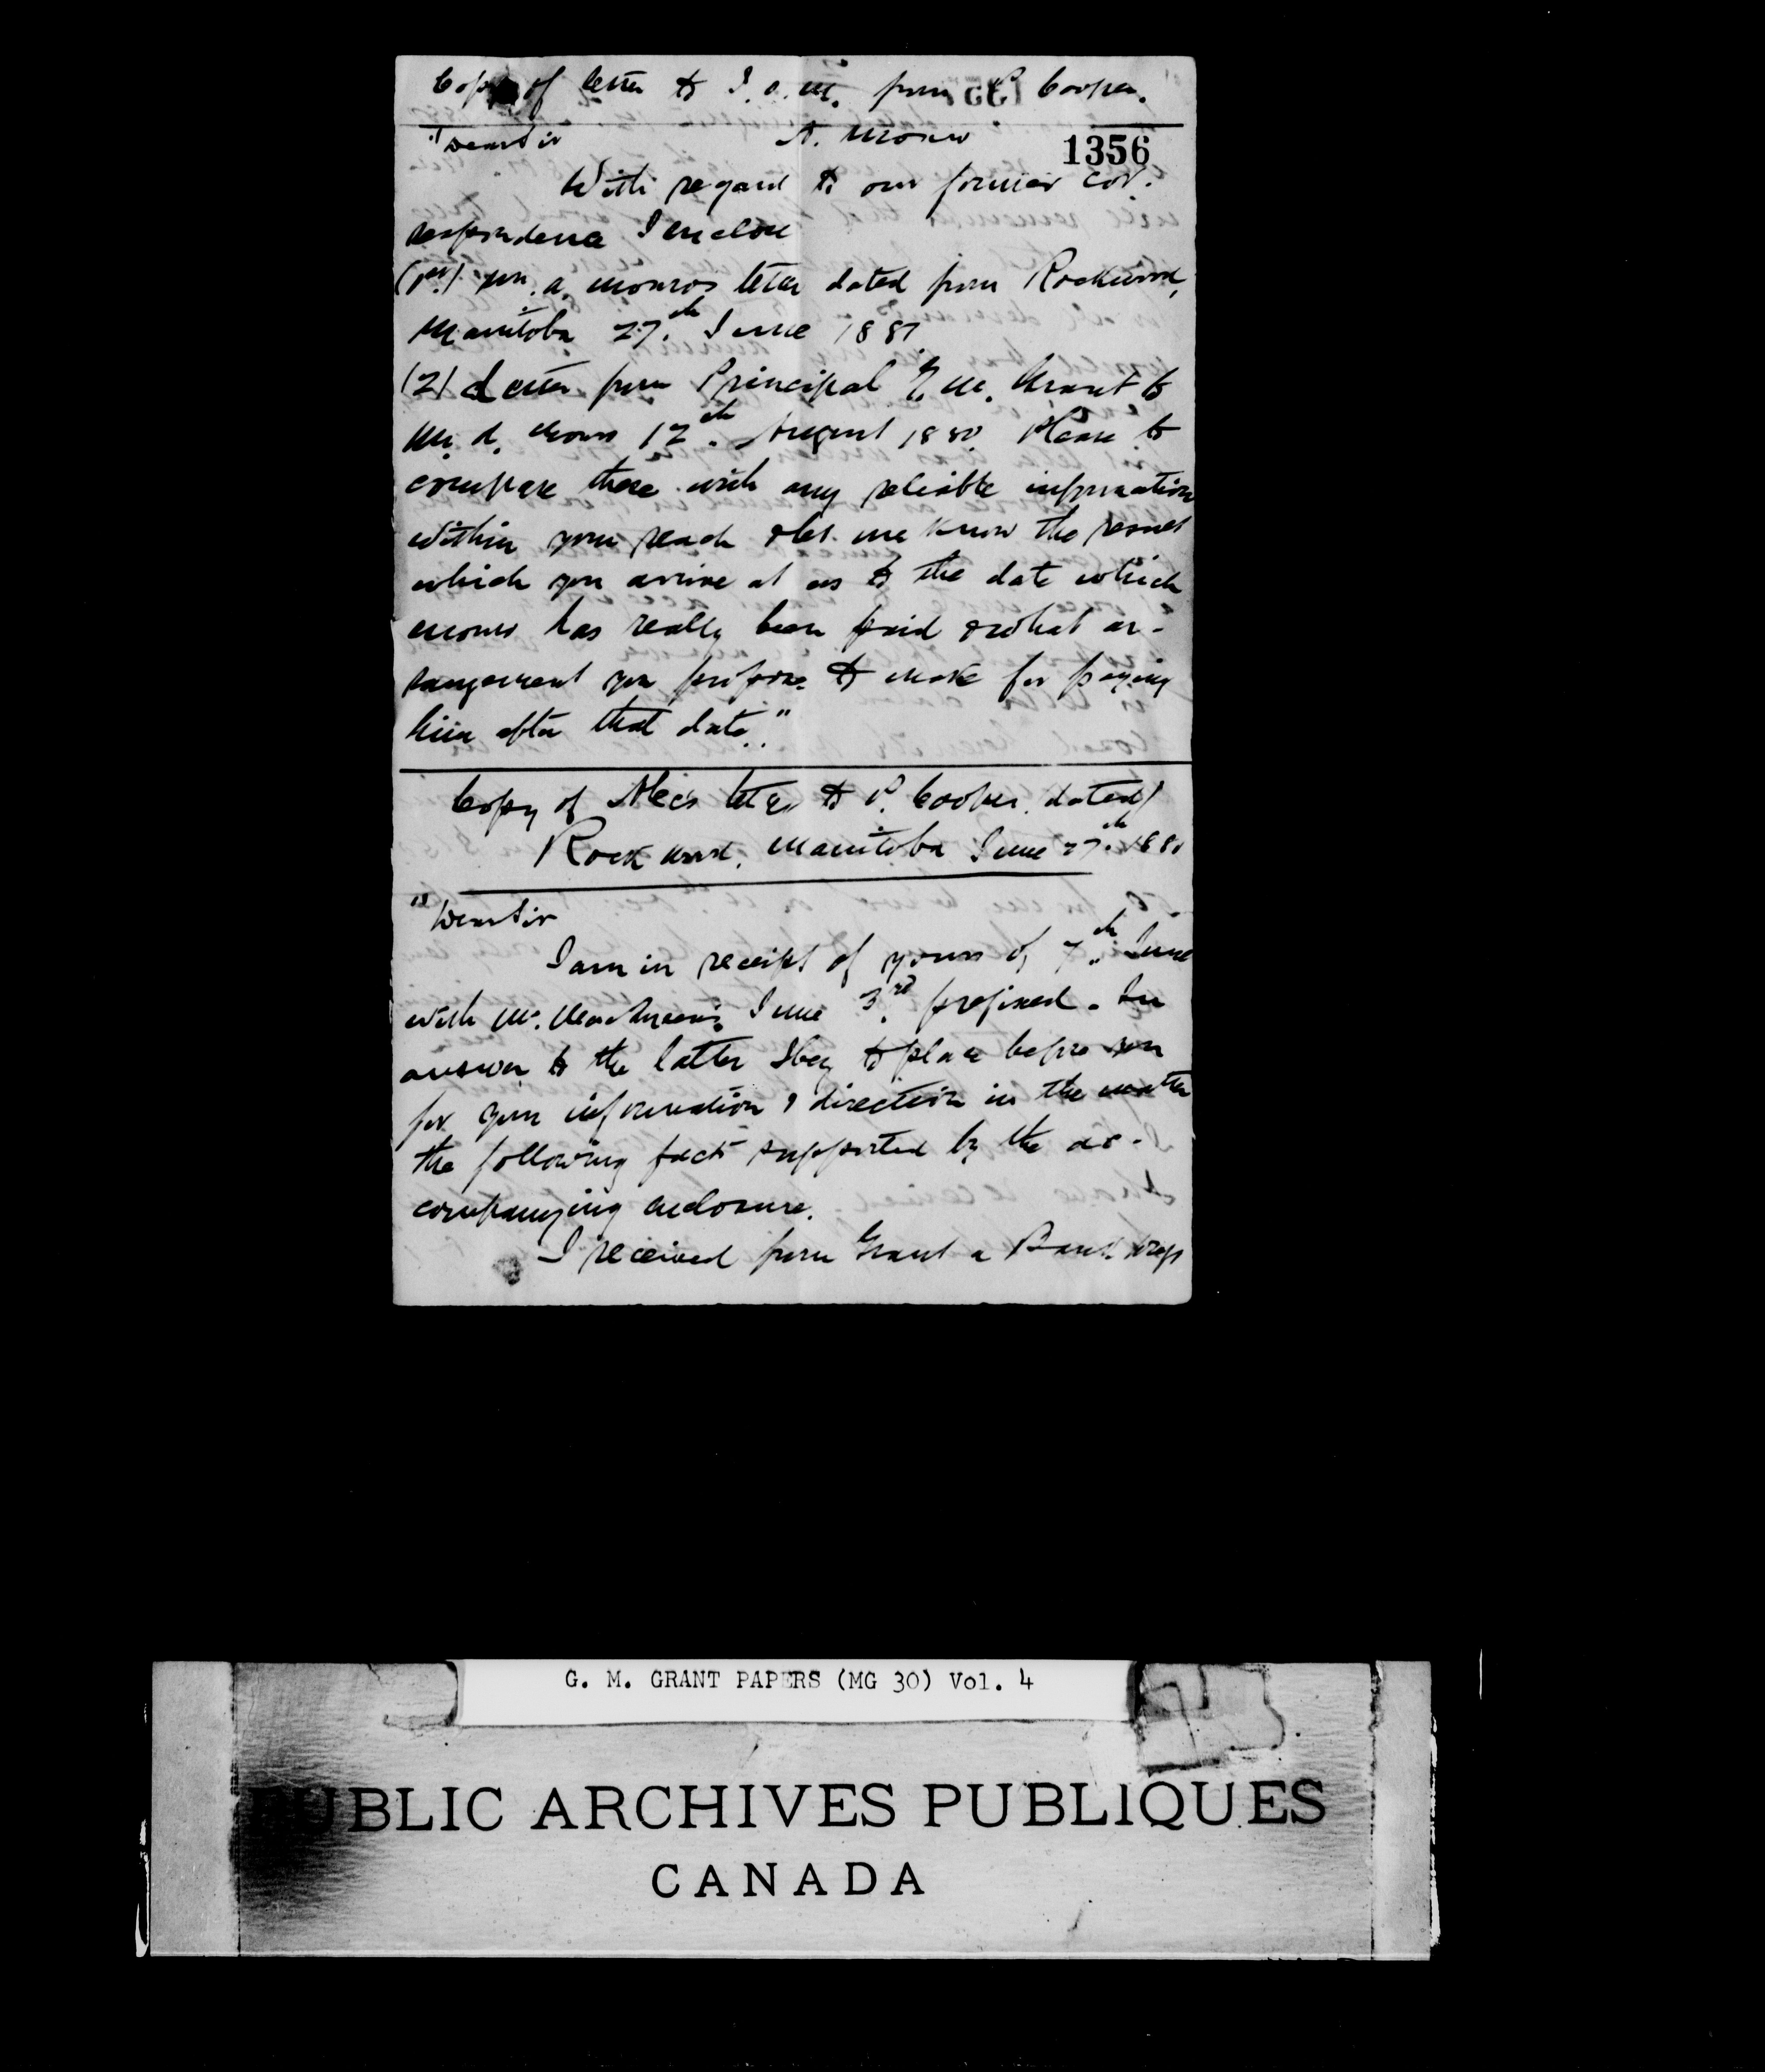 Copy of letter to J. A. M. from P. Cooper.
"Dear Sir A. Monro
1356
With regard to our former cor-
respondence I enclose
(1st.) Mr. A. Monro's letter dated from Rockwood,
Manitoba 27.th June 1881
(2) Letter from Principal G. M. Grant to
Mr. A. Monro 12th. August 1880. Please to
compare these with any reliable information
within your reach & let me know the result
which you arrive at as to the date which
Monro has really been paid & what ar-
rangement you propose to make for paying
him after that date."
Copy of Alec's letter to P. Cooper dated
Rockwood, Manitoba June 27.th 1881
"Dear Sir
I am in receipt of yours of 7.th June
with Mr. June 3.rd prefixed. In
answer to the latter I beg to place before you
for your information & direction in the matter
the following facts supported by the ac-
companying enclosure.
I received from Grant a Bank
G. M. GRANT PAPERS (MG 30) Vol. 4
PUBLIC ARCHIVES PUBLIQUES
CANADA